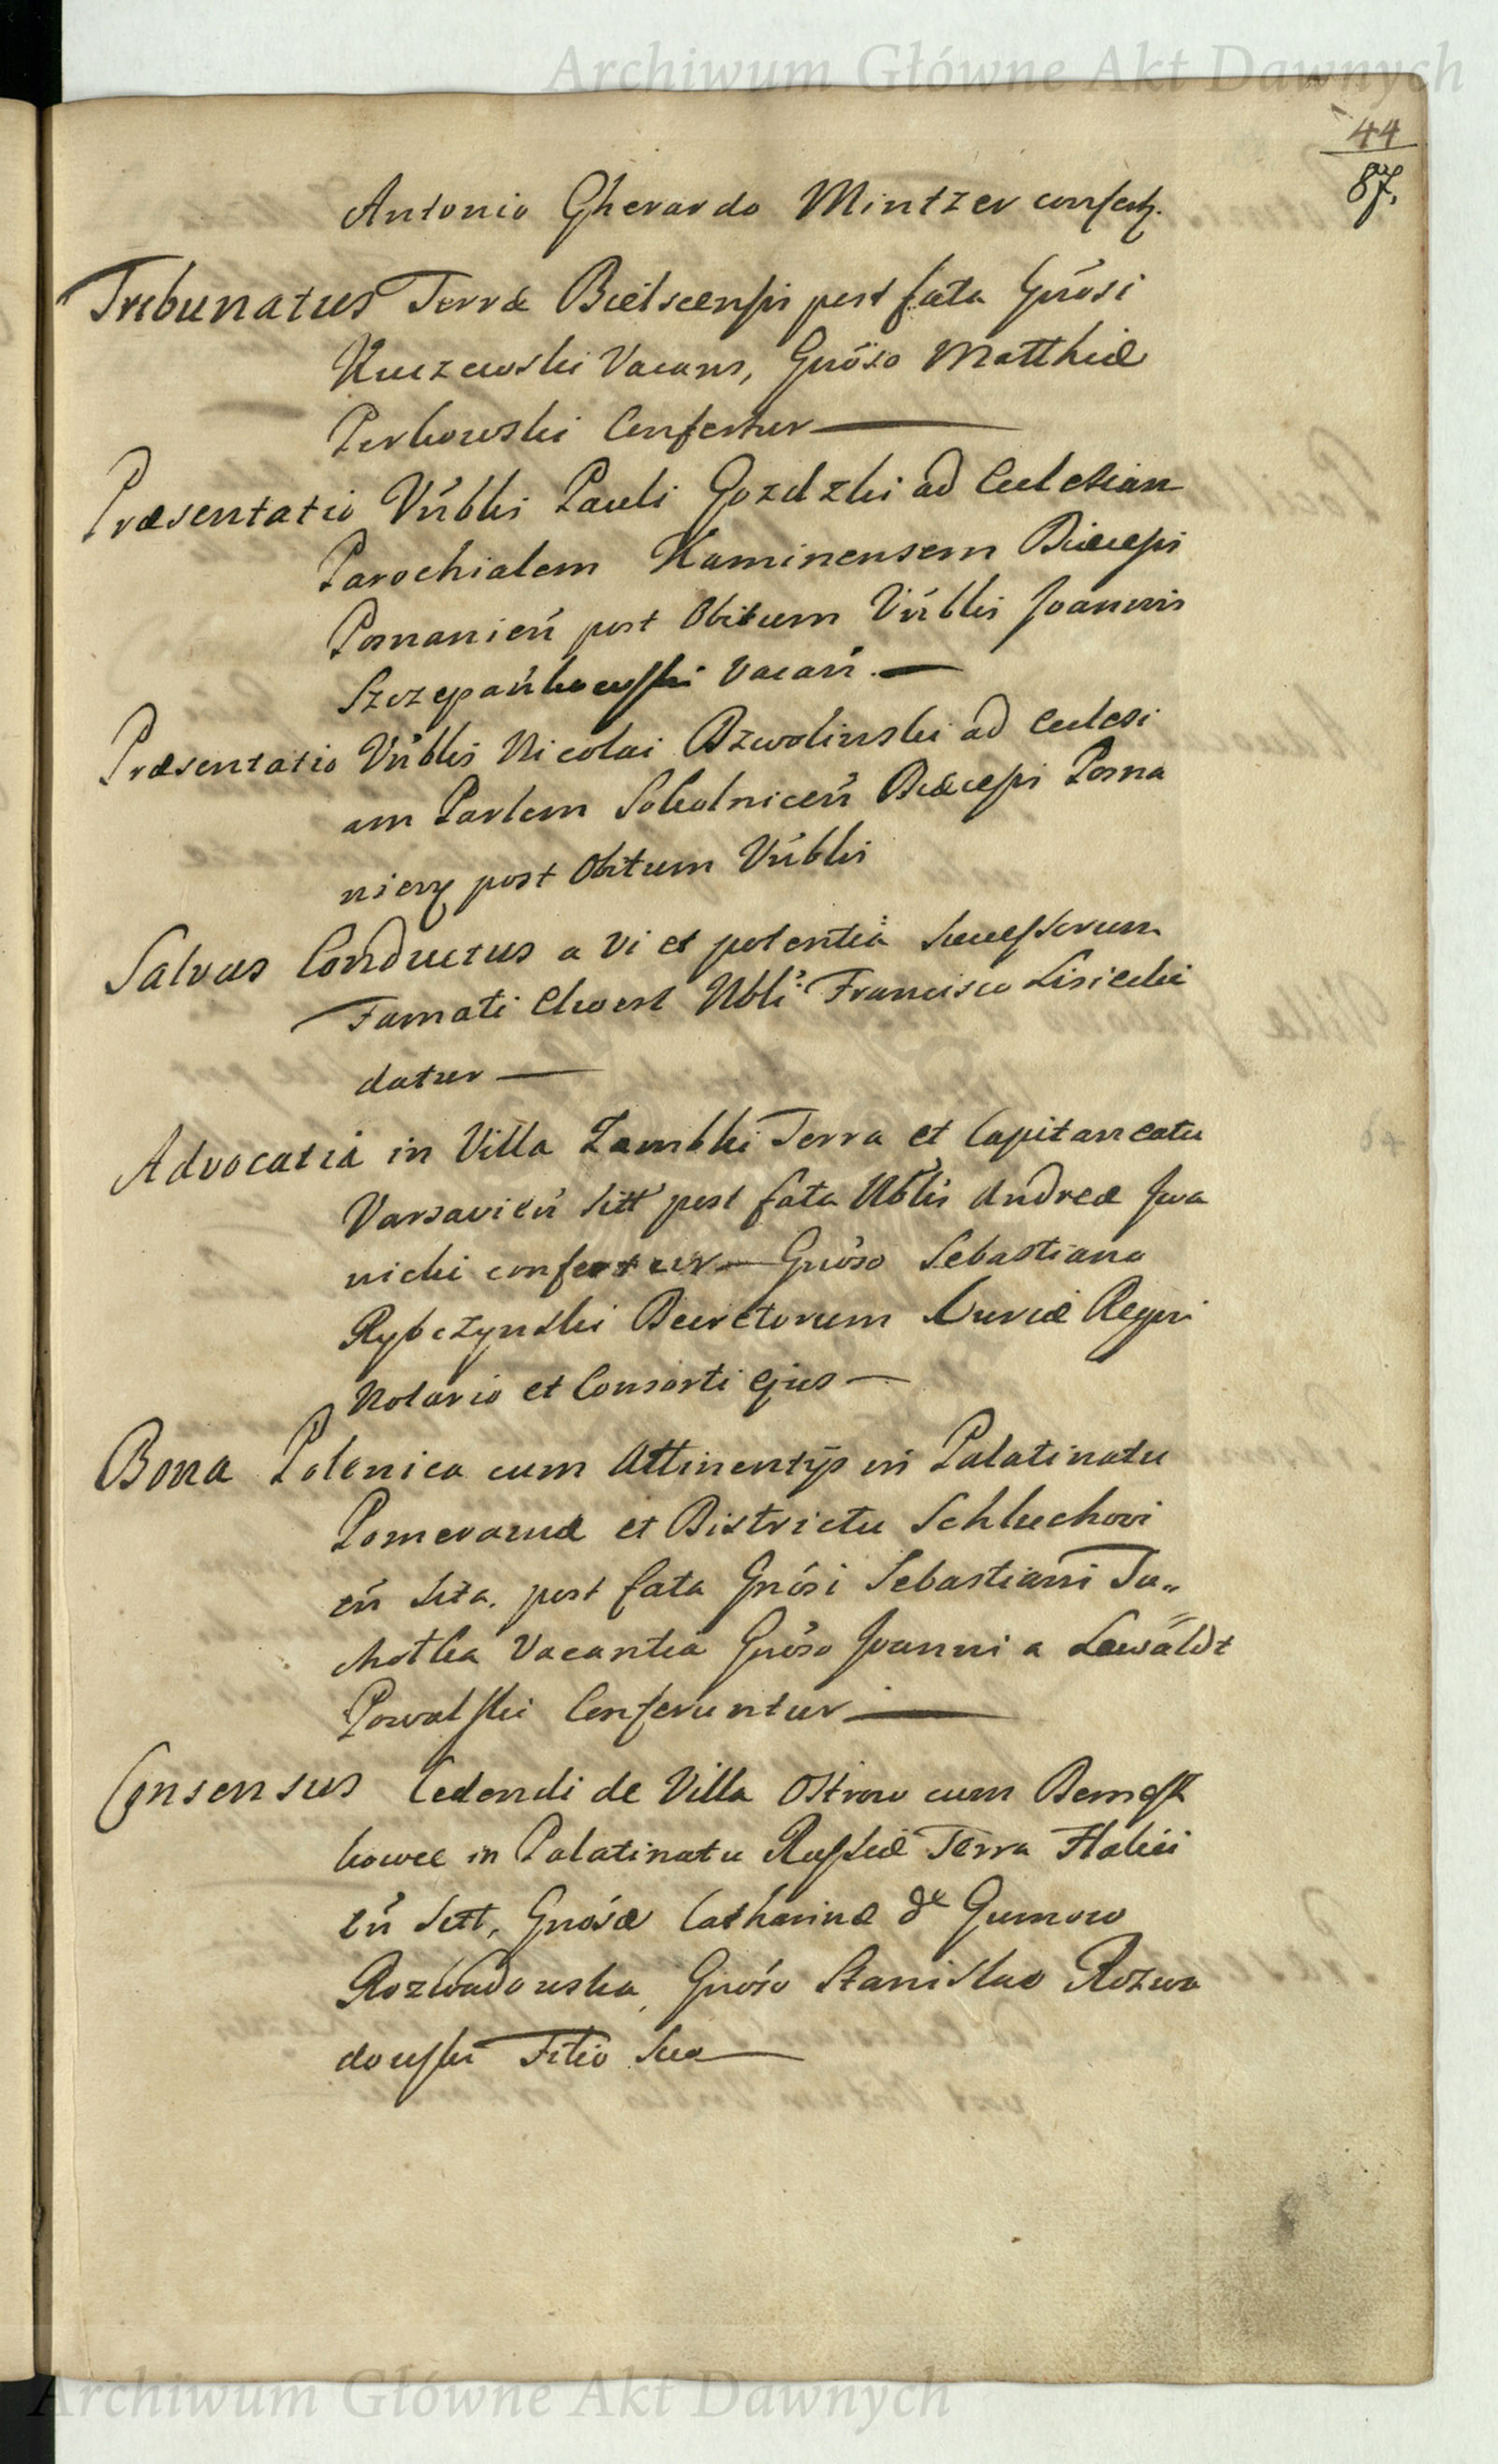 Archiwum Główne Akt Dawnych
44
87.
Antonio Gherardo Mintzer confert.
Tribunatus Terræ Bielscensis post fata Gnosi
Kuczewski Vacans, Gnoso Matthiæ
Perkowski Confertur
Præsentatio Vnblis Pauli Gozdzki ad Ecclesiam
Parochialem Kaminensem Diæcesis
Posnanien post Obitum Vnblis Joannis
Szczepańkowski Vacań.
Præsentatio Vnblis Nicolai Dzwolinski ad Ecclesi
am Parlem Sokolniceń Diæcesis Posna
nien post Obitum Vnblis
Salvus Conductus a vi et potentia Successorum
Famati Ewert Nbli Francisco Lisiecki
datur
Advocatia in Villa Zambki Terra et Capitaneatu
Varsavień Sitt post fata Nblis Andreæ Iwa
nicki confertur Gnoso Sebastiano
Rybczynski Decretorum Curiæ Regni
Notario et Consorti Ejus
Bona Polonica cum Attinentÿs in Palatinatu
Pomeraniæ et Districtu Schluchovi
eń Sita. post fata Gnosi Sebastiani Tu„
chotka Vacantia Gnoso Joanni a Lewaldt
Powalski Conferuntur
Consensus Cedendi de Villa Ostrow cum Demesz
kowce in Palatinatu Russiæ Terra Halici
eń Sitt, Gnosæ Catharinæ de Gumowo
Rozwadowska, Gnoso Stanislao Rozwa
dowski Filio Suo
Archiwum Główne Akt Dawnych